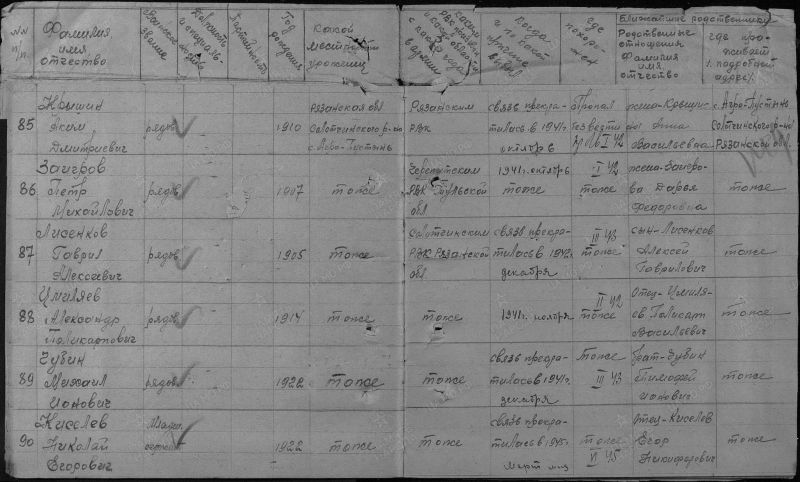 NN п/п
Фамилия имя отчество
Воинское звание
Партийность
Год рождения
Какой местности уроженец
Когда и по какой причине выбыл
Где похоронен
Ближайшие родственники
Родственные отношения Фамилия имя, отчество
где проживает (подробный адрес)
85
Крышин
Яким
Дмитриевич
рядов
1910
Рязанская обл
Солотчинского р-на
с. Агро-Пустынь
Рязанским
РВК
связь прекра-
тилась в 1941г.
октябрь
Пропал
без вести
I 42
жена-Крыши-
на Анна
Васильевна
с. Агро-Пустынь
Солотчинского р-на
Рязанской обл.
86
Заигров
Петр
Михайлович
рядов
1907
тоже
Черепетским
РВК Тульской
обл
1941г. октябрь
тоже
I 42
тоже
жена-Заигро-
ва Дарья
Федоровна
тоже
87
Лисенков
Гаврил
Алексеевич
рядов
1905
тоже
Солотчинским
РВК Рязанской
обл.
связь прекра-
тилась в 1942г.
декабря
III 43
тоже
сын-Лисенков
Алексей
Гаврилович
тоже
88
Цмиляев
Александр
Поликарпович
рядов
1914
тоже
тоже
1941г. ноября
II 42
тоже
отец-Цмиля-
ев Поликарп
Васильевич
тоже
89
Чувин
Михаил
Ионович
рядов
1922
тоже
тоже
связь прекра-
тилась в 1941г.
декабря
тоже
III 43
брат-Чувин
Тимофей
Ионович
тоже
90
Киселев
Николай
Егорович
1922
тоже
тоже
связь прекра-
тилась в 1945г.
март м-ц
тоже
VI 45
отец-Киселев
Егор
Никифорович
тоже